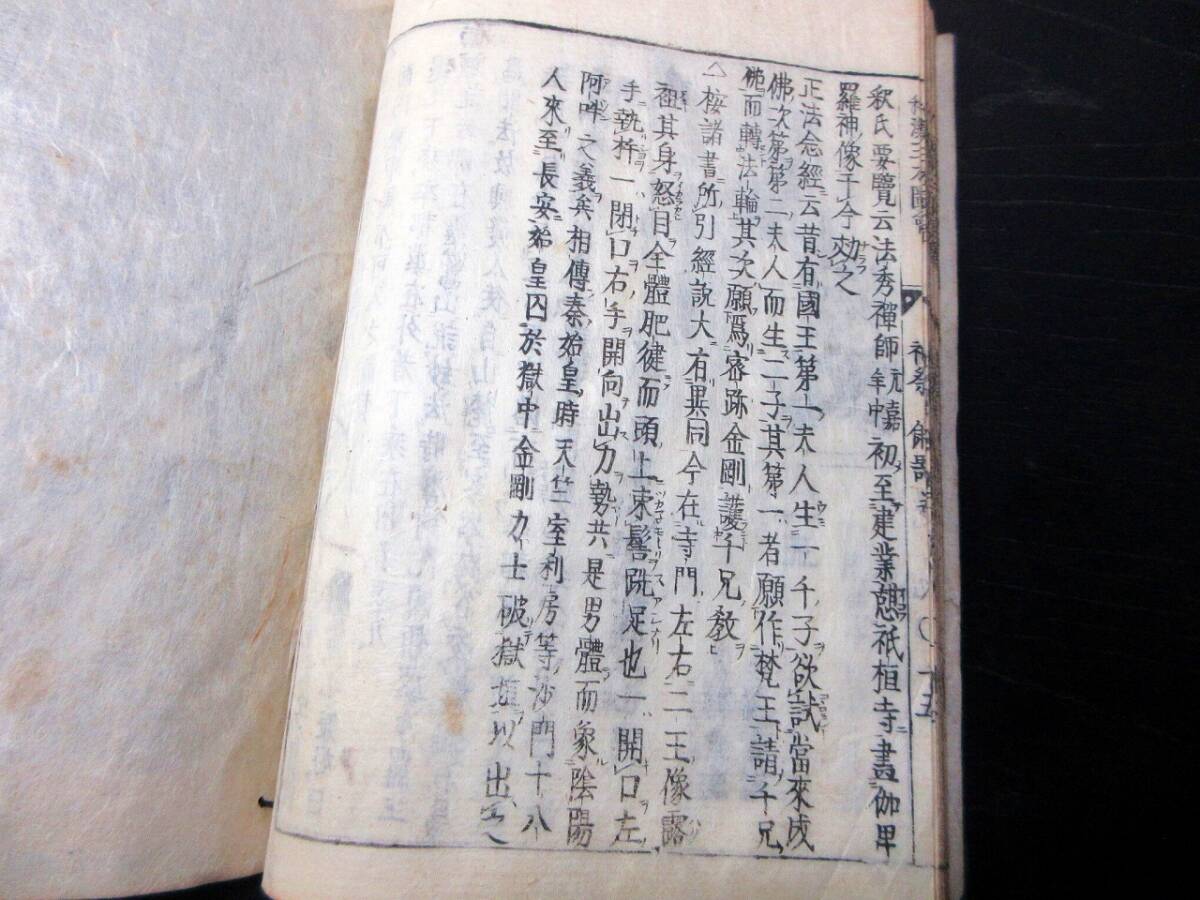 和漢三才圖會
神祭
十五
釈氏要覽云法秀禪師元嘉年中初至建業憩祇桓寺畫伽毘
羅神像于今効之
正法念經云昔有國王第一夫人生一千子欲試當來成
佛次第第二夫人而生二子其第一者願作梵王請千兄
佛而轉法輪其次願爲密跡金剛護千兄敎
△桉諸書所引經說大有異同今在寺門左右二王像露
袒其身怒目全體肥健而頭上束髻跣足也一開口左
手執杵一閉口右手開向出力勢共是男體而象陰陽
阿吽之義矣相傳秦始皇時天竺室利房等沙門十八
人來至長安始皇囚於獄中金剛力士破獄垣以出之